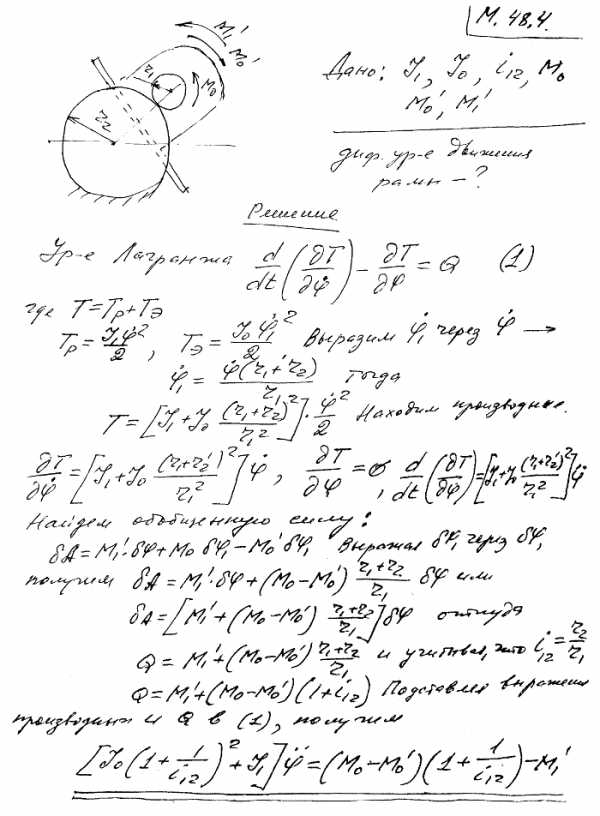 М. 48.4.
M₁′
M₀′
M₀
r₁
r₂
Дано: J₁, J₀, i₁₂, M₀
M₀′, M₁′
диф. ур-е движения
рамы — ?
Решение
Ур-е Лагранжа d/dt (∂T/∂φ̇) − ∂T/∂φ = Q (1)
где T = Tр + Tэ
Tр = J₁φ̇²/2, Tэ = J₀φ̇₁²/2 Выразим φ̇₁ через φ̇ →
φ̇₁ = φ̇(r₁+r₂)/r₁ тогда
T = [J₁ + J₀ (r₁+r₂)²/r₁²] · φ̇²/2 Находим производные.
∂T/∂φ̇ = [J₁ + J₀ (r₁+r₂)²/r₁²] φ̇, ∂T/∂φ = 0, d/dt (∂T/∂φ̇) = [J₁ + J₀ (r₁+r₂)²/r₁²] φ̈
Найдем обобщенную силу:
δA = M₁′·δφ + M₀ δφ₁ − M₀′ δφ₁ Выражая δφ₁ через δφ,
получим δA = M₁′·δφ + (M₀−M₀′) (r₁+r₂)/r₁ δφ или
δA = [M₁′ + (M₀−M₀′) (r₁+r₂)/r₁] δφ откуда
Q = M₁′ + (M₀−M₀′) (r₁+r₂)/r₁ и учитывая, что i₁₂ = r₂/r₁
Q = M₁′ + (M₀−M₀′)(1+i₁₂) Подставляя выражения
производных и Q в (1), получим
[J₀(1 + 1/i₁₂)² + J₁] φ̈ = (M₀−M₀′)(1 + 1/i₁₂) − M₁′